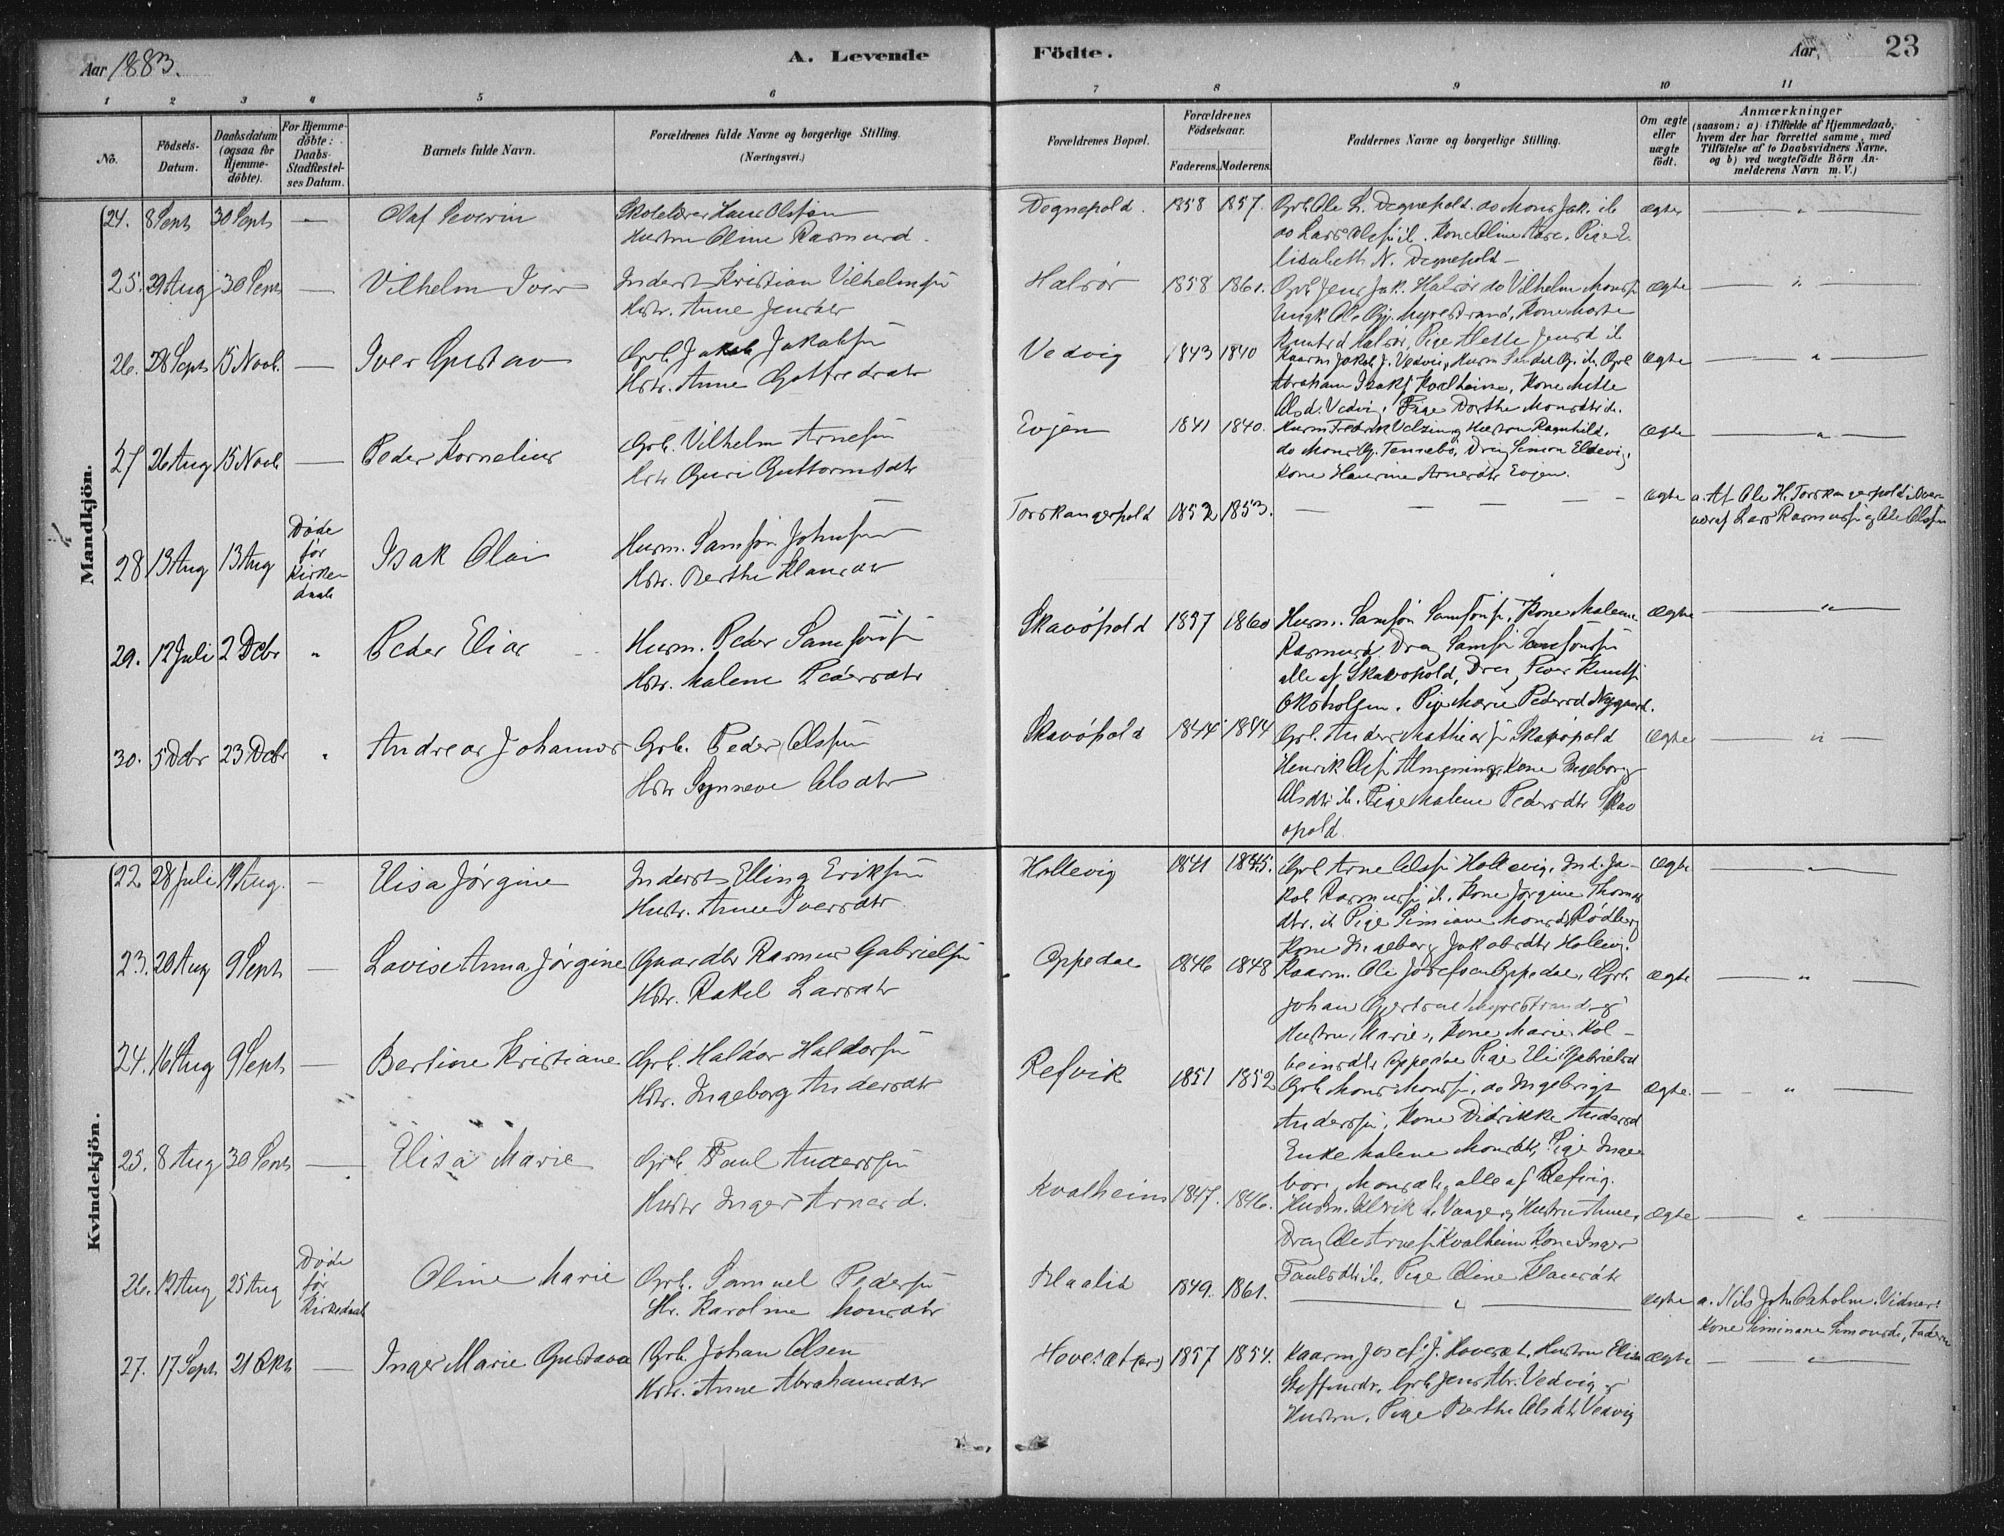 Aar 1883.
A. Levende
Födte.
Aar
23
1
2
3
4
5
6
7
8
9
10
11
No.
Födsels-
Datum.
Daabsdatum
(ogsaa for
Hjemme-
döbte).
For Hjemme-
döbte:
Daabs-
Stadfæstel-
ses Datum.
Barnets fulde Navn.
Forældrenes fulde Navne og borgerlige Stilling.
(Næringsvei.)
Forældrenes Bopæl.
Forældrenes
Födselsaar.
Faderens. Moderens.
Faddernes Navne og borgerlige Stilling.
Om ægte
eller
uægte
födt.
Anmærkninger
(saasom: a) i Tilfælde af Hjemmedaab,
hvem der har forrettet samme, med
Tilföielse af to Daabsvidners Navne,
og b) ved uægtefödte Börn An-
melderens Navn m. V.)
Mandkjön.
24. 8 Sept 30 Sept — Olaf Severin
Skolelærer Hans Olsson
Hustru Oline Rasmusd.
Degnepold. 1858 1857.
lisabeth N. Degnepold —
ægte
25. 29 Aug 30 Sept — Vilhelm Iver
Inderst Kristian Vilhelmsen
Hstr. Anne Jensdtr
Halsør 1858 1861.
Grb Jens Jak. Halsør do Vilhelm Monss.
ægte
26. 28 Sept 15 Novb. — Iver Gustav
Grb. Jakob Jakobsen
Hstr. Anne Gotfredsdtr
Vedvig 1843 1840
Abraham Isaks Kvalheim, Kone Mette
Olsd. Vedvig, Pige Dorthe Monsdtr ib.
ægte
27 26 Aug 15 Novb — Peder Kornelius
Grb. Vilhelm Arnesen
Hstr Guri Guttormsdtr
Evjen 1841 1840.
do Mons G. Tennebö, Dreng Simon Eldevig,
Kone Arnesdtr Evjen.
ægte
28 13 Aug 13 Aug
Døde
før
Kirke-
daab
Isak Olai
Husm. Samson Johnsen
Hstr. Berthe Klausdtr
Torskangerpold 1852 1853.
ægte
a. Af Ole H. Torskangerpold i Nær-
29. 12 Juli 2 Dcbr " Peder Elias
Husm. Peder Samsonsen
Hstr. Malene Pedersdtr
Skavöpold 1857 1860
Husm. Samson Samsons., Kone Malene
Rasmusd. Dreng Samson Samsonsen
alle af Skavöpold, Dreng Peder Knuts.
Oksholmen. Pige Marie Pedersd Nygaard.
ægte
30. 5 Dcbr 23 Dcbr " Andreas Johannes
Grb. Peder Olsen
Hstr Synneve Olsdtr
Skavöpold 1844 1844
Grb. Anders Mathiass. Skavöpold
Henrik Ols. Almenning, Kone Ingeborg
Olsdtr ib. Pige Malene Pedersdtr Skav
öpold
ægte
Kvindekjön.
22 28 Juli 19 Aug. — Elisa Jørgine
Inderst Elling Eriksen
Hustr. Anne Iversdtr.
Hollevig 1841 1845.
Grb Arne Olss. Hollevig, Ind. Ja-
kob Rasmuss. ib. Kone Jørgine Thomas
dtr. ib Pige Simiane Monsd Rødberg
Kone Ingeborg Jakobsdtr Holevig.
ægte
23. 20 Aug 9 Sept — Lovise Anna Jørgine
Gaardbr Rasmus Gabrielsen
Hstr. Rakel Larsdtr
Oppedal 1846 1848
Kaarm. Ole Josefsen Oppedal, Grb.
Hustru Marie, Kone Marie Kol-
beinsdtr Oppedal Pige Eli Gabrielsd
ægte
24. 16 Aug 9 Sept — Bertine Kristiane
Grb. Haldor Haldorsen
Hstr. Ingeborg Andersdtr
Refvik 1851 1852
Grb Mons Monss., do Ingebrigt
Anderssen, Kone Didrikke Andersd
Enke Malene Monsdtr, Pige Inge
borg Monsdtr, alle af Refvig.
ægte.
25. 8 Aug 30 Sept — Elisa Marie
Grb. Paul Anderssen
Hustr Inger Arnesd.
Kvalheim 1847. 1846.
Husm. Ulrik L. Vaage og Hustru Anne,
Dreng Ole Arnes. Kvalheim Kone Inger
Paulsdtr ib. Pige Oline Klausdtr
ægte
26. 12 Aug 25 Aug
Døde
før
Kirkedaab
Oline Marie
Grb. Samuel Pedersen
Hr. Karoline Monsdtr
Raalid 1849. 1861.
ægte
a. Nils Joh. Oxholm. Vidner:
Kone Siminane Simonsd., Faderen
27. 17 Sept 21 Okt — Inger Marie Gustava
Grb. Johan Olsen
Hstr. Anne Abrahamsdtr
Hovesæt 1857 1854.
Kaarm Josef J. Hovesæt, Hustru Elisa
Steffensdr. Grb Jens Abr. Vedvig og
Hustru, Pige Berthe Olsdtr Vedvig
ægte